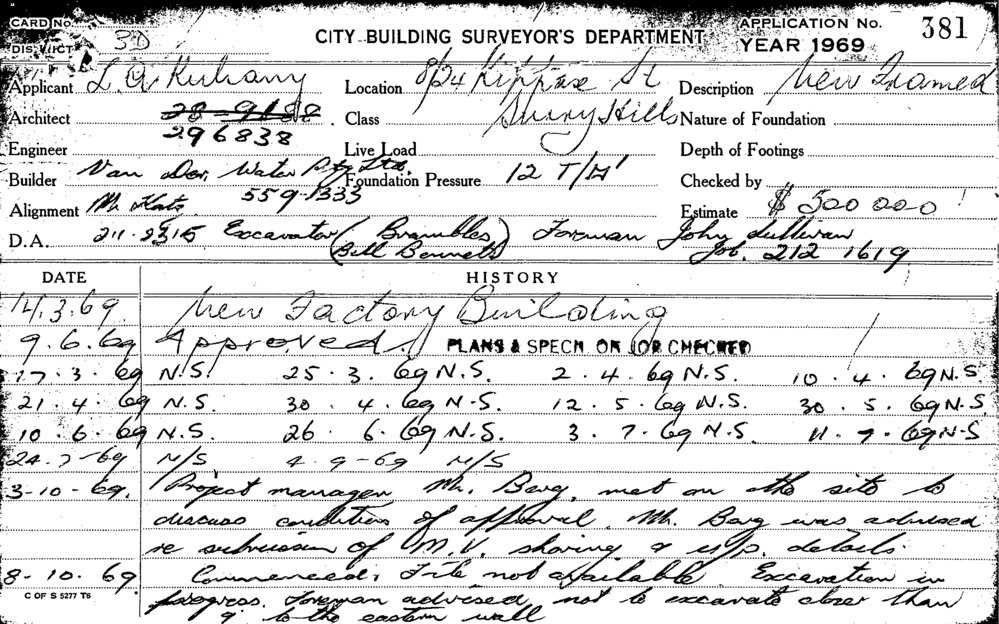 CARD No. CITY BUILDING SURVEYOR'S DEPARTMENT APPLICATION No. 381
DISTRICT 3D YEAR 1969
Applicant L. A. Location 8/24 Kippax St Description New Framed
Architect 28-9188 Class Surry Hills Nature of Foundation
296838
Engineer Live Load Depth of Footings
Builder Van Der, Water Pty Ltd. Foundation Pressure 12 T/ Checked by
Alignment Mr 559-1333 Estimate $ 500 000
D.A. Excavator (Brambles) Foreman John Sullivan
(Bill Bennett) Job. 212 1619
DATE HISTORY
14.3.69. New Factory Building
9.6.69 Approved. PLANS & SPECN. ON JOB CHECKED
17.3.69 N.S. 25.3.69 N.S. 2.4.69 N.S. 10.4.69 N.S.
21.4.69 N.S. 30.4.69 N.S. 12.5.69 N.S. 30.5.69 N.S.
10.6.69 N.S. 26.6.69 N.S. 3.7.69 N.S. 11.7.69 N.S
24.7-69 N/S 4.9-69 N/S
3-10-69. Project manager Mr. Berg, met on the site to
discuss conditions of approval. Mr. Berg was advised
re submission of M.V. shoring & u/p. details.
8-10.69 Commenced. File not available. Excavation in
C OF S 5277 T6 progress. Foreman advised not to excavate closer than
to the eastern wall